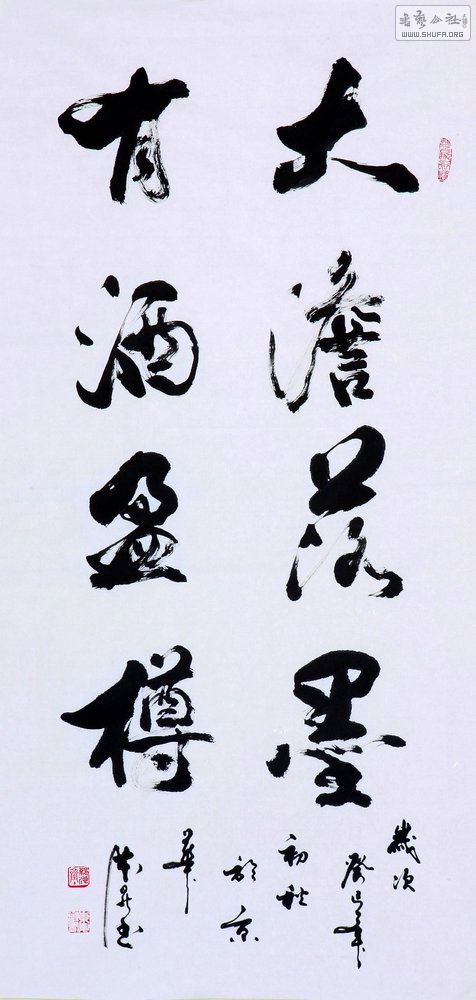 书艺公社
WWW.SHUFA.ORG
大膽落墨
有酒盈樽
歲次
癸巳年
初秋
於京
華
書